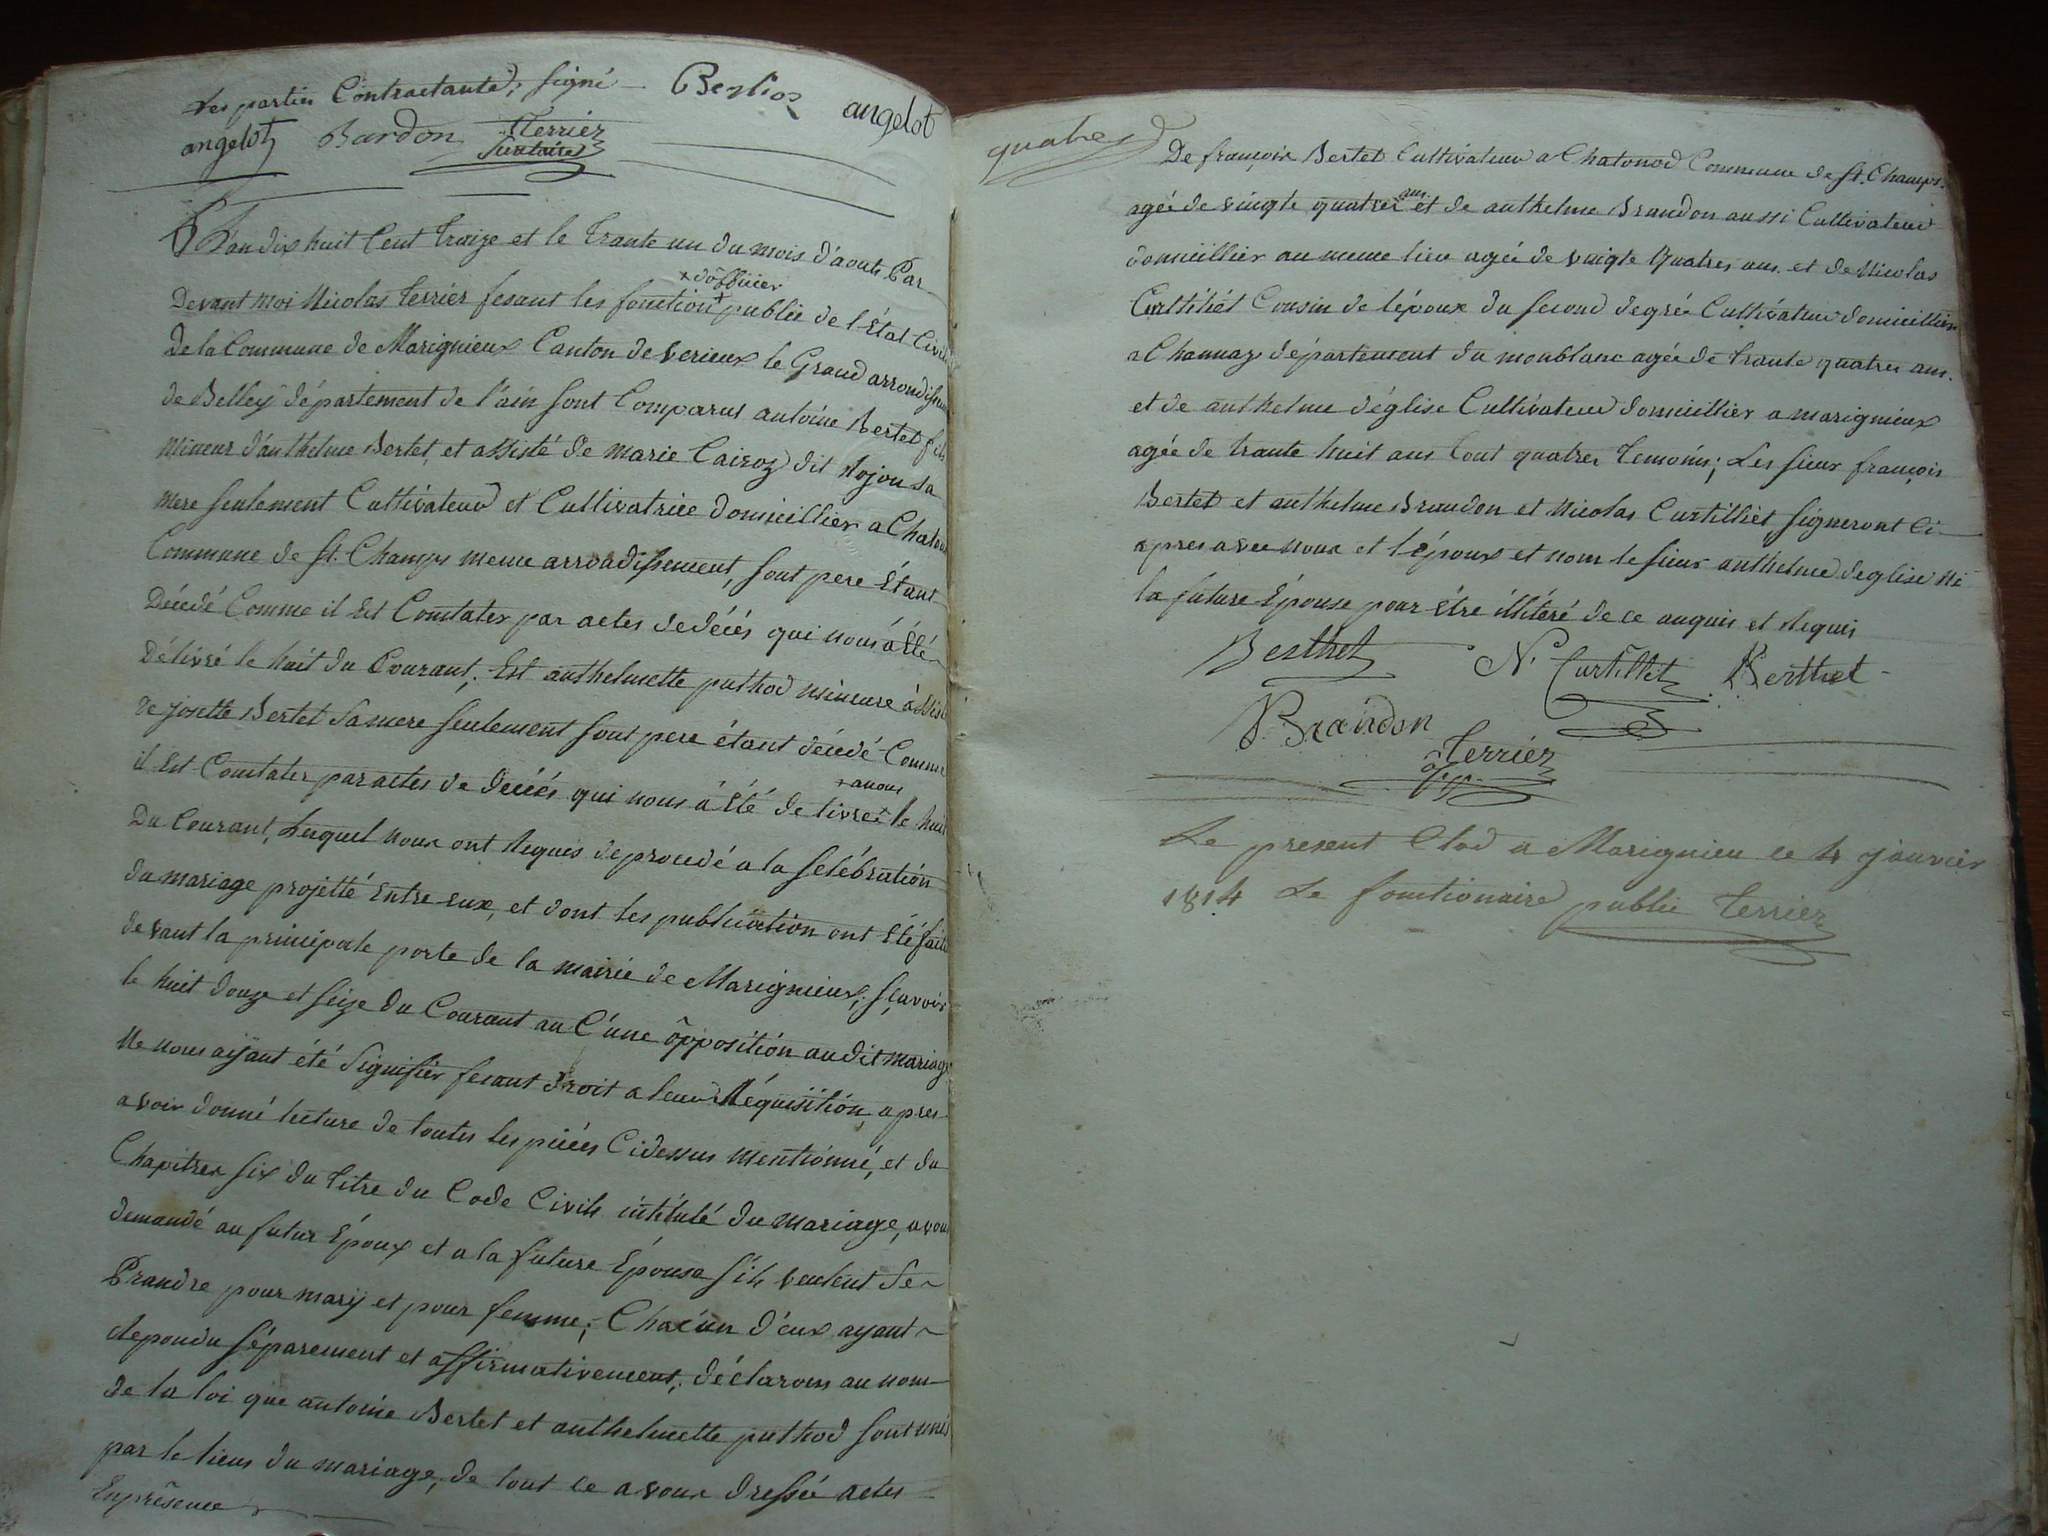 Les parties Contractante, signé Berlioz angelot
angelot Bardon Terrier
Secretaire
L'an dix huit Cent traize et le trante un du mois d'aout Par
Devant moi Nicolas Terrier fesant les fonction + publie de l'état Civil
+ d'officier
De la Commune de Marignieux Canton de verieux le Grand arrondissem
de Belley département de l'ain sont Comparus antoine Bertet fils
Mineur d'anthelme Bertet, et assisté de marie Cairoz dit Rojon sa
mere seulement Cultivateur et Cultivatrice domicillier a Chaton
Commune de St. Champs meme arrondissement, sont pere étant
Décédé Comme il Est Constater par actes dedécés qui nous a été
Délivré le huit du Courant; Est anthelmette puthod mineure assist
de josette Bertet samere seulement sont pere étant décedé Comme
il Est Constater par actes de Décés qui nous à été de livret le huit
+ anous
Du Courant, Lequel nous ont Requis de procedé a la selébration
du mariage projetté Entre eux, et dont les publication ont été faite
devant la principale porte de la mairie de Marignieux; sçavoir
le huit douze et seize du Courant au C'une opposition audit mariage
Ne nous aÿant été signifier fesant droit a leur Réquisition, apres
avoir donné lecture de toutes les piéces Cidessus mentionné, et du
Chapitres six du titre du Code Civile intitulé du mariage, avons
demandé au futur Époux et a la future Épouse s'ils veulent se
Prandre pour marÿ et pour femme; Chacun d'eux ayant
Repondu séparement et affirmativement; déclarons au nom
de la loi que antoine Bertet et anthelmette puthod sont unis
par le liens du mariage; de tout ce avons dressée actes
Enprésence
quatres
De françoix Bertet Cultivateur a Chatonod Commune de St. Champs.
agée de vingte quatres ans et de anthelme Brandon aussi Cultivateur
domicillier au meme lieu agée de vingte quatres ans. et de Nicolas
Curtilliét Cousin de l'époux du second degrée Cultivateur domicillier
a Chanaz département du monblanc agée de trante quatres ans.
et de anthelme déglise Cultivateur domicillier a marignieux
agée de trante huit ans tout quatres temoins; Les sieur françois
Bertet et anthelme Brandon et Nicolas Curtilliét signeront Ci-
apres avec nous et l'époux et nom le sieur anthelme deglise ni
la future Épouse pour être illitéré de ce anquis et Requis
Berthet N. Curtillet Berthet
Brandon
Terrier
off.p.
Le present Clod a Marignieu ce 4 janvier
1814 Le fonctionaire publie Terrier